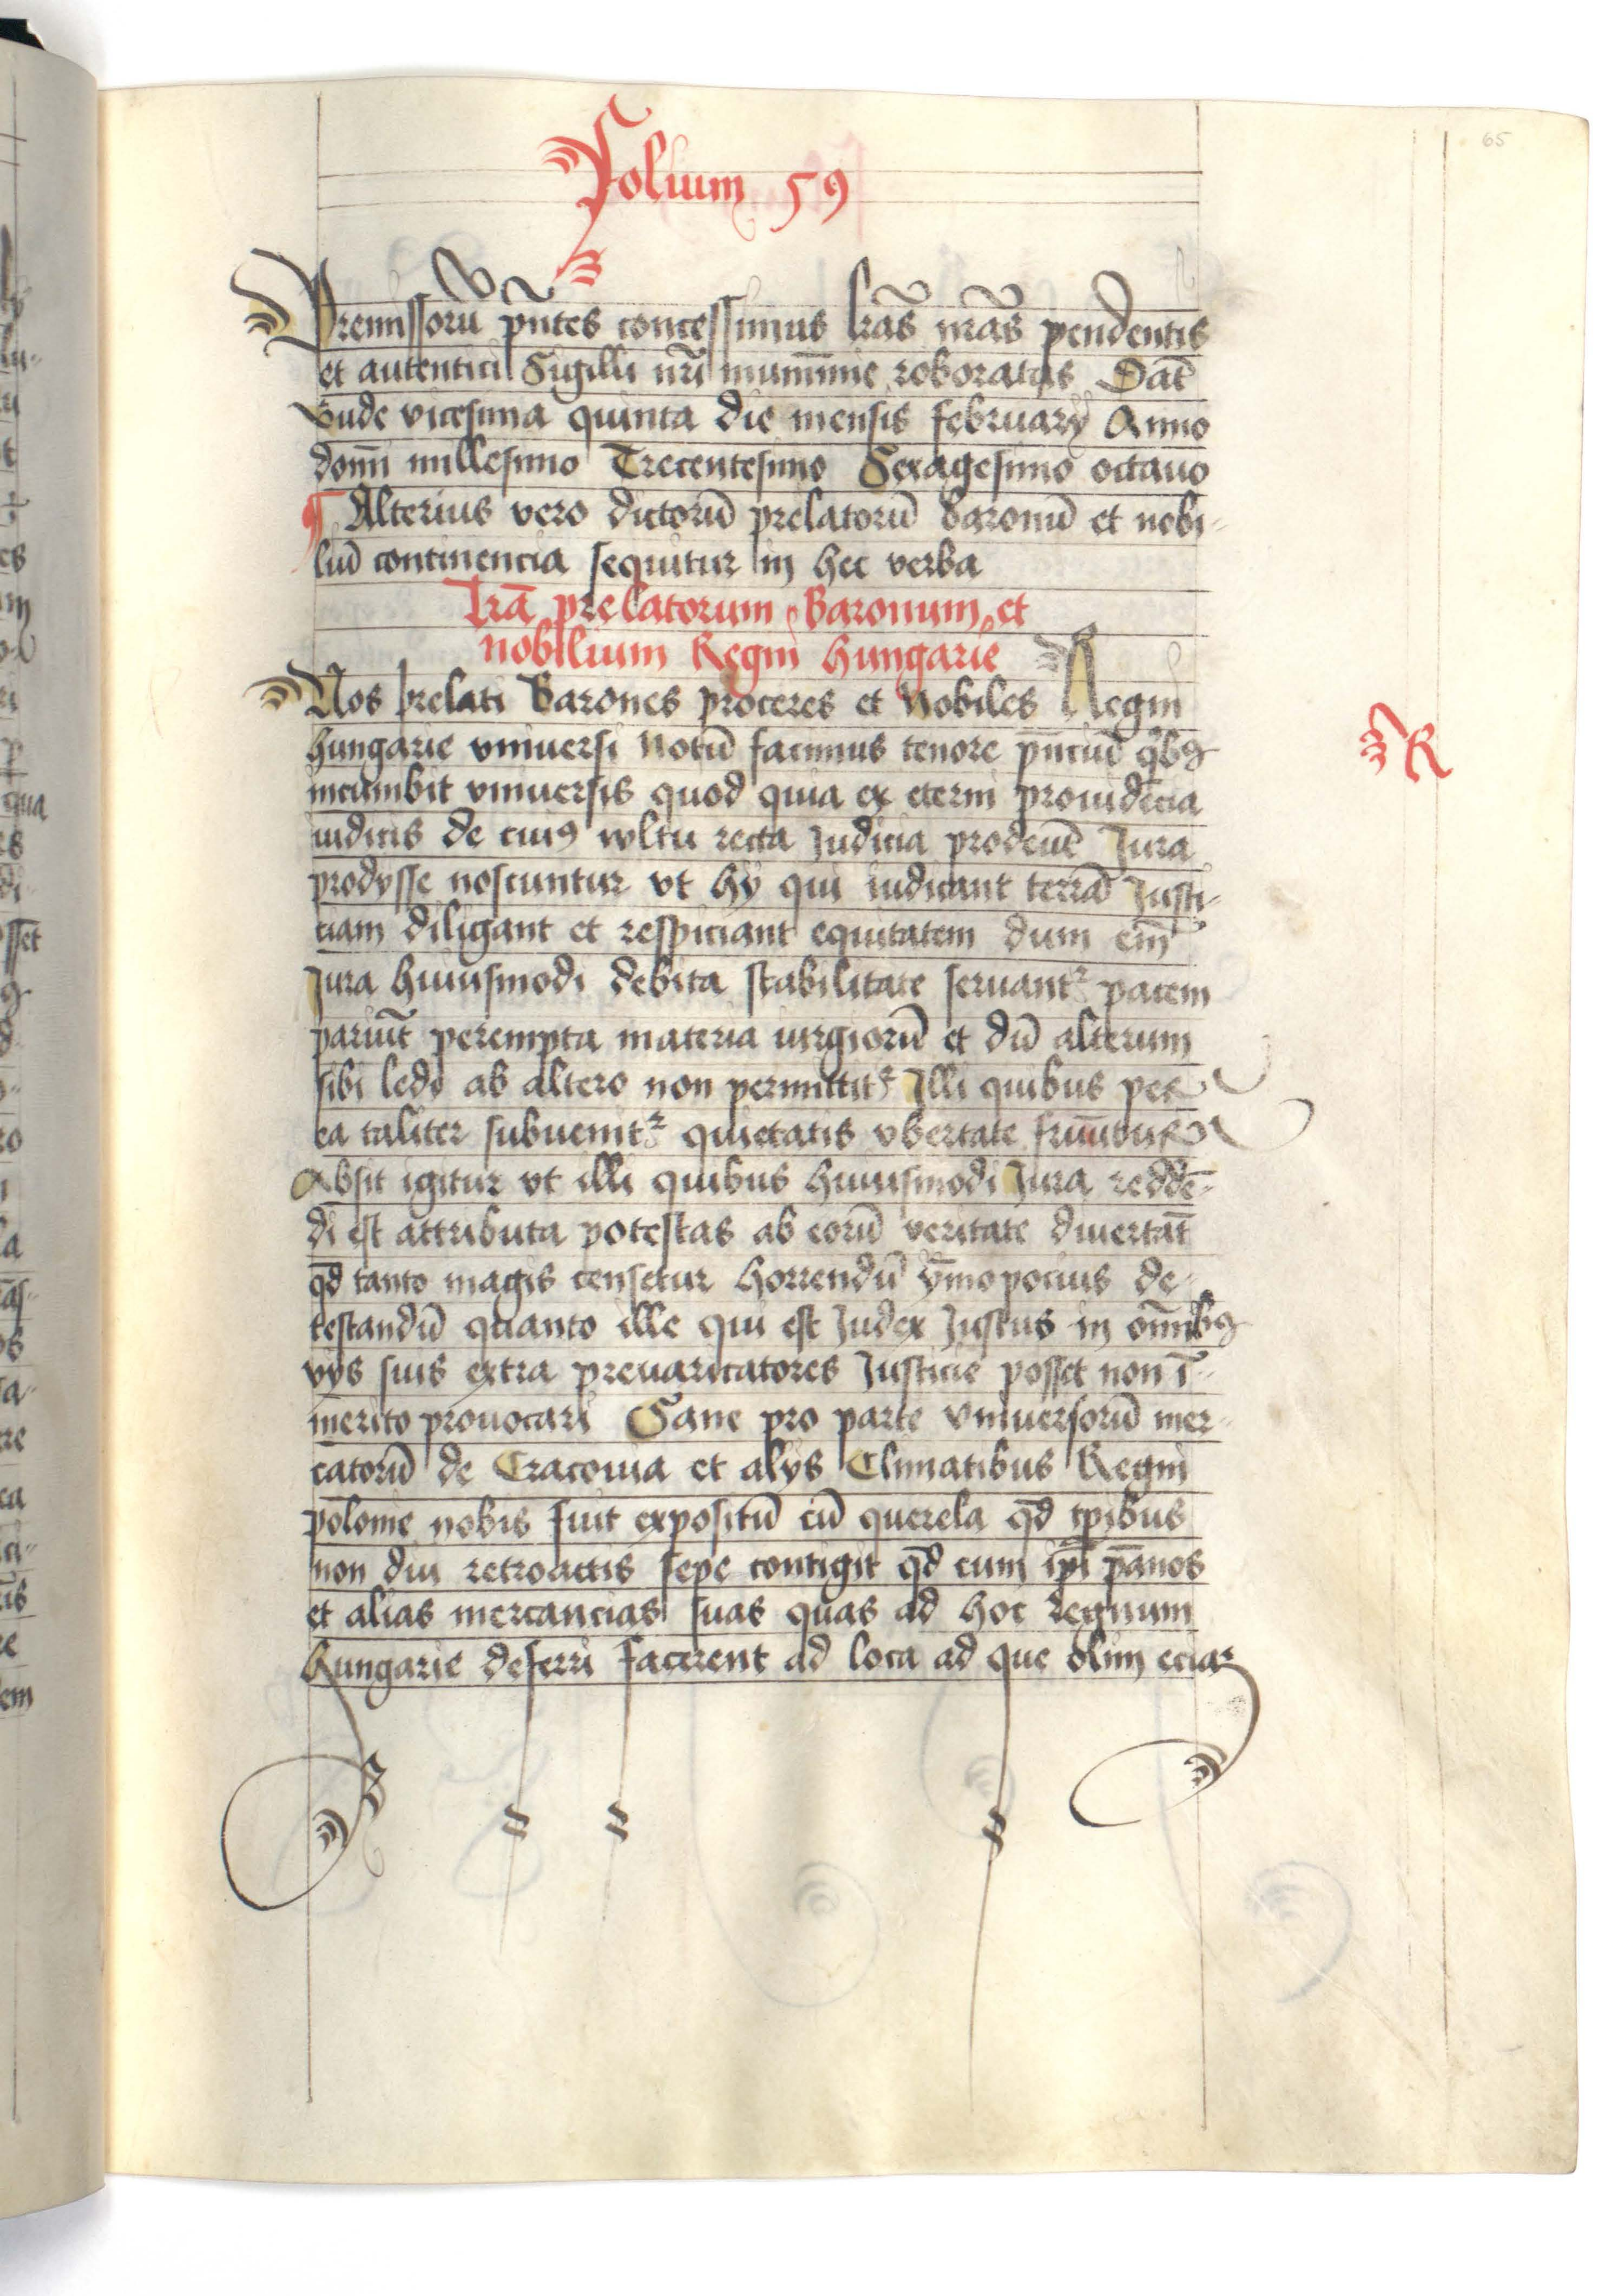 65
Folium 59
Premissorū pñtes concessimus lrãs nrãs pendentis
et autentici Sigilli nri̅ munimīne roboratas Dat̄
Bude vicesima quinta die mensis february Anno
domī millesimo Trecentesimo Sexagesimo octauo
¶ Alterius vero dictorū prelatorū baronū et nobi-
liū continencia sequitur in hec verba
Lrã prelatorum Baronum et
nobilium Regni hungarie
Nos prelati Barones proceres et Nobiles Regni
hungarie vniuersi Notū facimus tenore pñciū qͥbꝫ
incumbit vniuersis quod quia ex eterni prouidēcia
iudicis de cuiꝰ wltu recta Judicia prodeūt Jura
prodysse noscuntur vt hy qui iudicant terrā Justi-
ciam diligant et respiciant equitatem dum em̄
Jura huiusmodi debita stabilitate seruantᷣ pacem
pariūt perempta materia iurgiorū et dū alterum
sibi ledi ab altero non permittitᷣ Illi quibus per
ea taliter subuenitᷣ quietatis vbertate fruūtur
Absit igitur vt illi quibus huiusmodi Jura reddē-
di est attributa potestas ab eorū veritate diuertāt
qd̄ tanto magis censetur horrendū ȳmo pocius de-
testandū quanto ille qui est Judex Justus in om̄ibꝫ
vys suis extra preuaricatores Justicie posset non ī-
merito prouocari Sane pro parte vniuersorū mer-
catorū de Cracouia et alys Climatibus Regni
polonie nobis fuit expositū cū querela qd̄ tp̄ibus
non diu retroactis sepe contigit qd̄ cum ip̄i pānos
et alias mercancias suas quas ad hoc regnum
hungarie deferri facerent ad loca ad que olim eciam
R